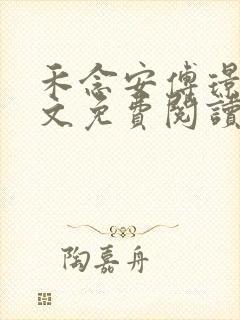 禾念安傅璟
文免費閱讀
陶嘉舟